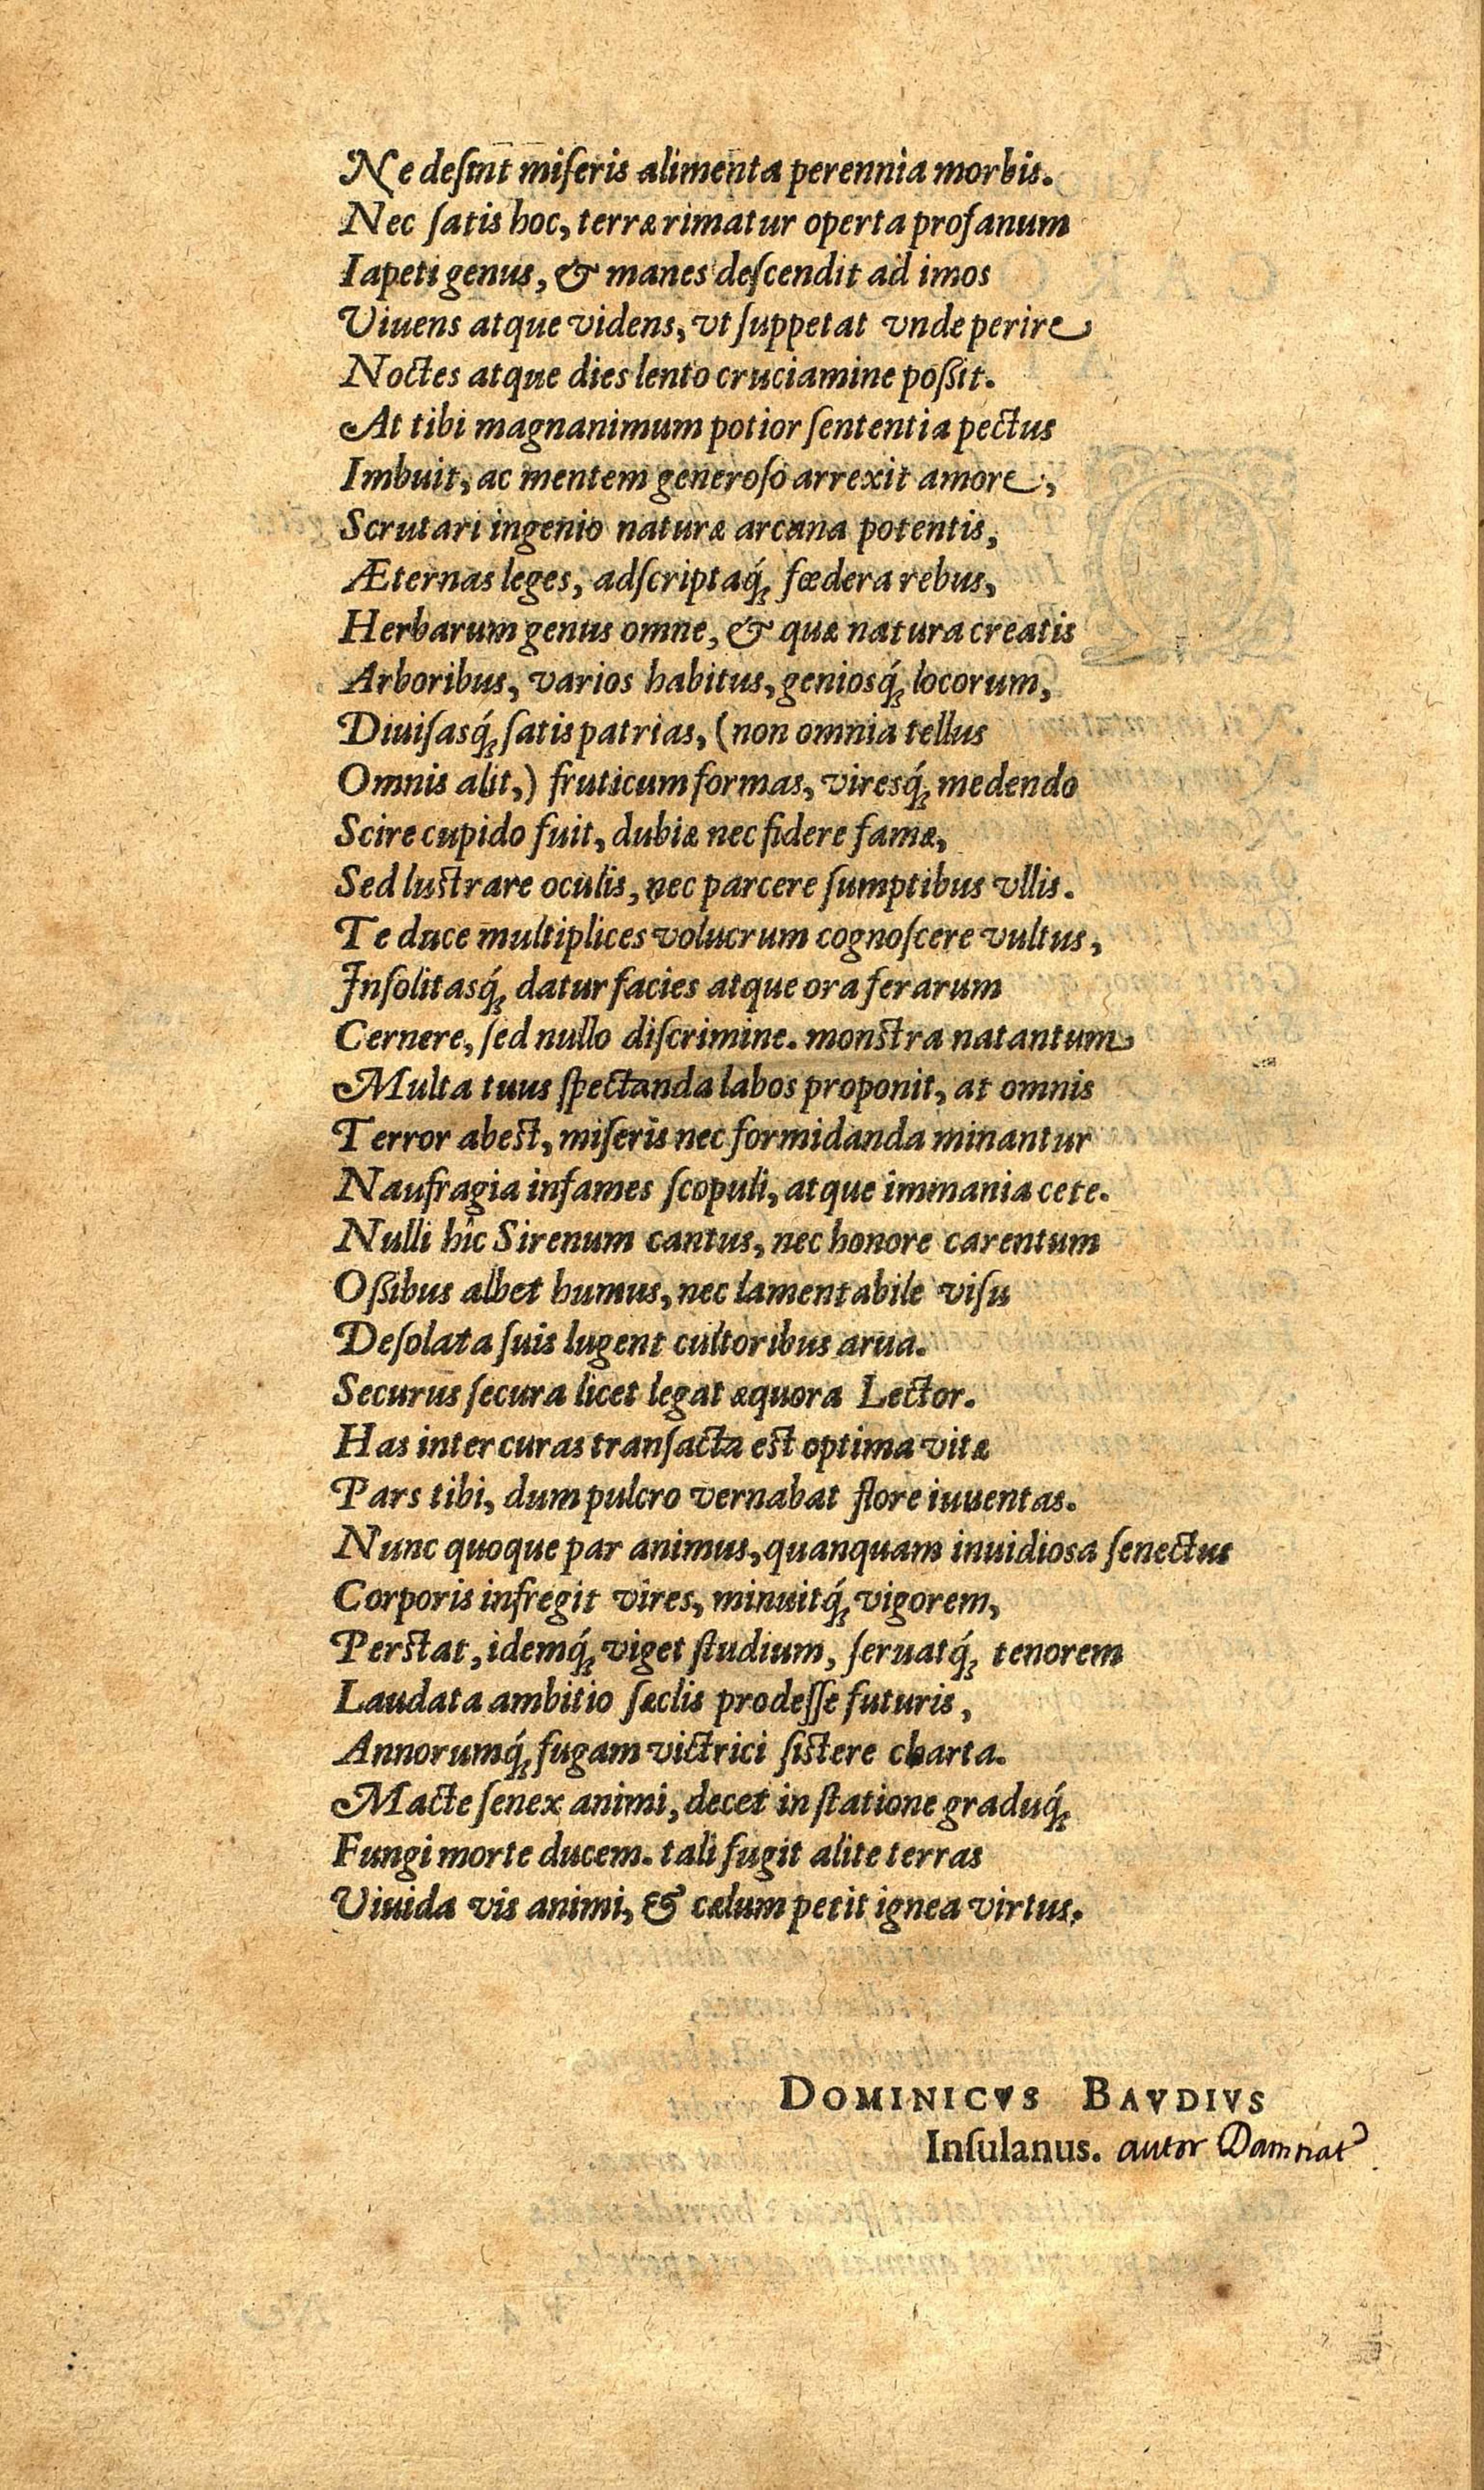 Ne desint miseris alimenta perennia morbis.
Nec satis hoc, terræ rimatur operta profanum
Iapeti genus, & manes descendit ad imos
Viuens atque videns, vt suppetat vnde perire
Noctes atque dies lento cruciamine poßit.
At tibi magnanimum potior sententia pectus
Imbuit, ac mentem generoso arrexit amore,
Scrutari ingenio naturæ arcana potentis,
Æternas leges, adscriptaq́; fœdera rebus,
Herbarum genus omne, & quæ natura creatis
Arboribus, varios habitus, geniosq́; locorum,
Diuisasq́; satis patrias, (non omnia tellus
Omnis alit,) fruticum formas, viresq́; medendo
Scire cupido fuit, dubiæ nec fidere famæ,
Sed lustrare oculis, nec parcere sumptibus vllis.
Te duce multiplices volucrum cognoscere vultus,
Insolitasq́; datur facies atque ora ferarum
Cernere, sed nullo discrimine. monstra natantum
Multa tuus spectanda labos proponit, at omnis
Terror abest, miseris nec formidanda minantur
Naufragia infames scopuli, atque immania cete.
Nulli hîc Sirenum cantus, nec honore carentum
Oßibus albet humus, nec lamentabile visu
Desolata suis lugent cultoribus arua.
Securus secura licet legat æquora Lector.
Has inter curas transacta est optima vitæ
Pars tibi, dum pulcro vernabat flore iuuentas.
Nunc quoque par animus, quanquam inuidiosa senectus
Corporis infregit vires, minuitq́; vigorem,
Perstat, idemq́; viget studium, seruatq́; tenorem
Laudata ambitio sæclis prodesse futuris,
Annorumq́; fugam victrici sistere charta.
Macte senex animi, decet in statione graduq́;
Fungi morte ducem. tali fugit alite terras
Viuida vis animi, & cælum petit ignea virtus.
DOMINICVS BAVDIVS
Insulanus. autor